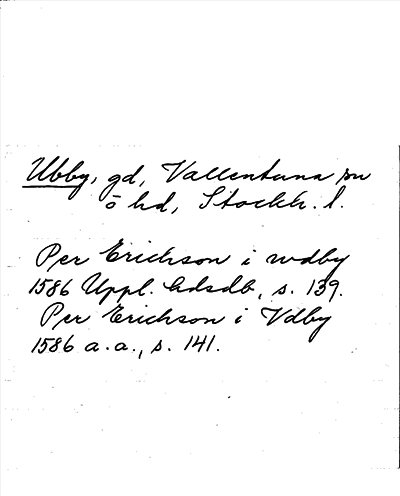 Ubby, gd, Vallentuna sn
o hd, Stockh. l.
Per Erichson i wdby
1586 Uppl. Ldsdb, s. 139.
Per Erichson i Vdby
1586 a.a., s. 141.